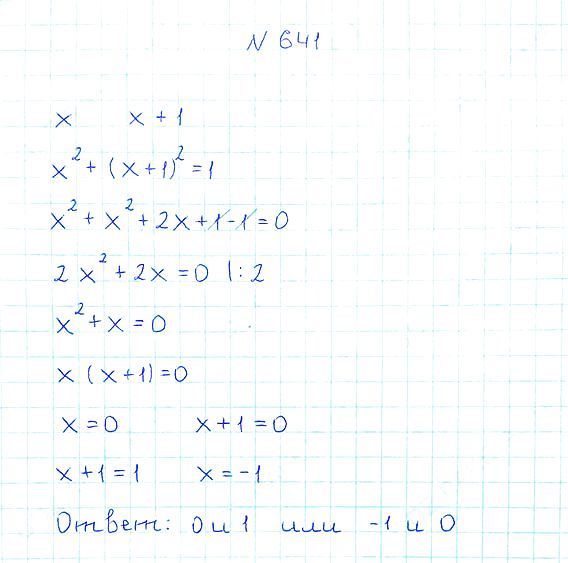 № 641
x x + 1
x² + (x+1)² = 1
x² + x² + 2x + 1 - 1 = 0
2x² + 2x = 0 |: 2
x² + x = 0
x (x+1) = 0
x = 0 x + 1 = 0
x + 1 = 1 x = -1
Ответ: 0 и 1 или -1 и 0